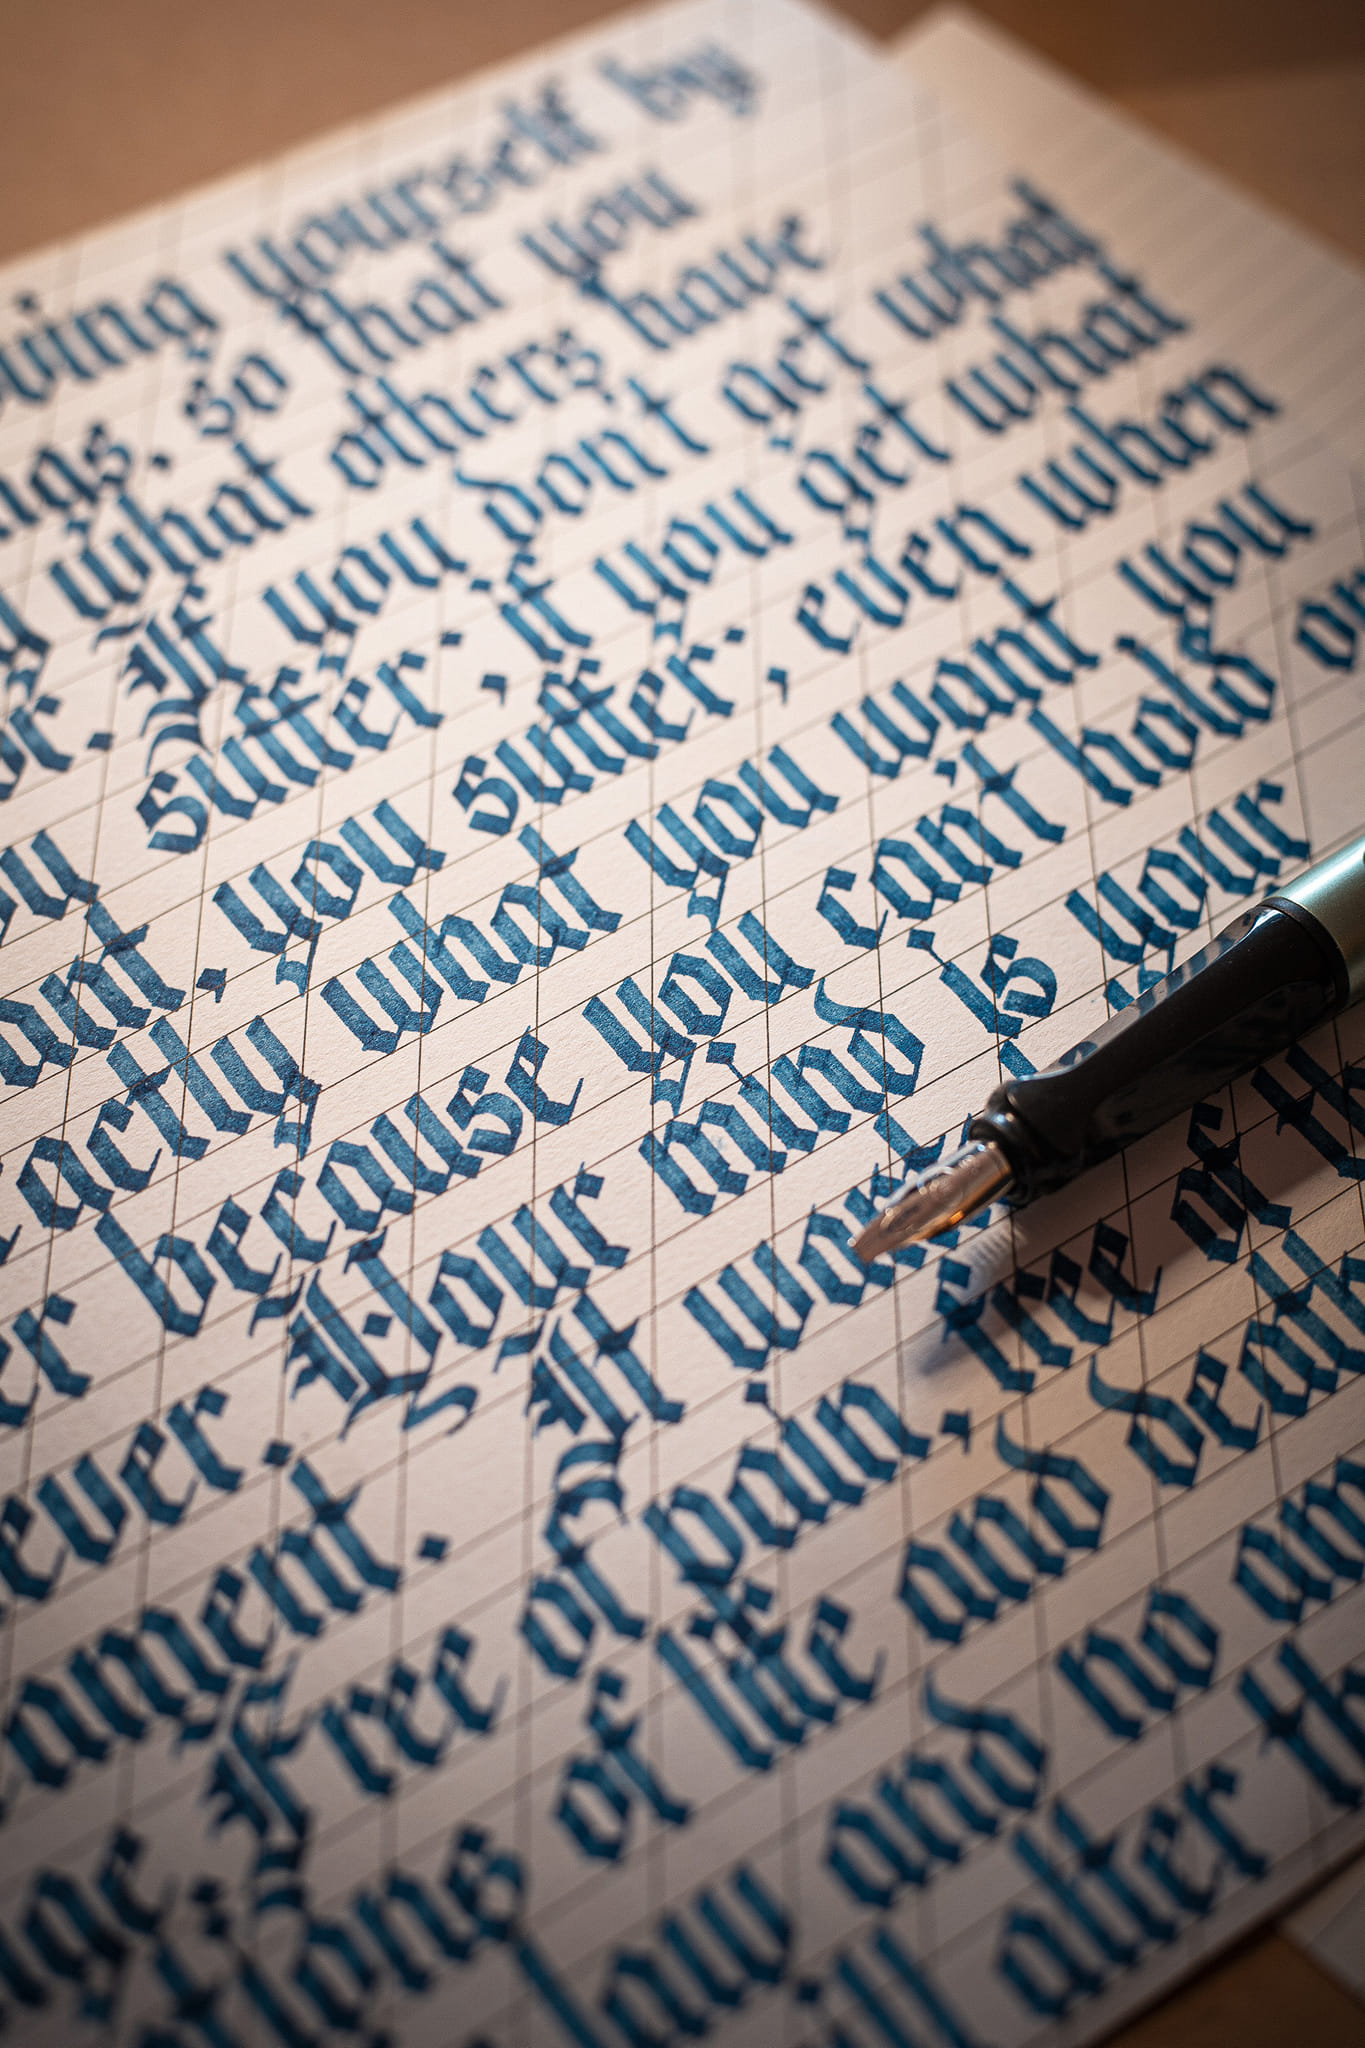 wing yourself by
ngs, so that you
what others have
or. If you don't get what
ou suffer; if you get what
ant, you suffer; even when
actly what you want you
er because you can't hold on
ever. Your mind is your
ament. It wan
nge. Free of pain, free of th
tions of life and death
law and no am
ll alter th